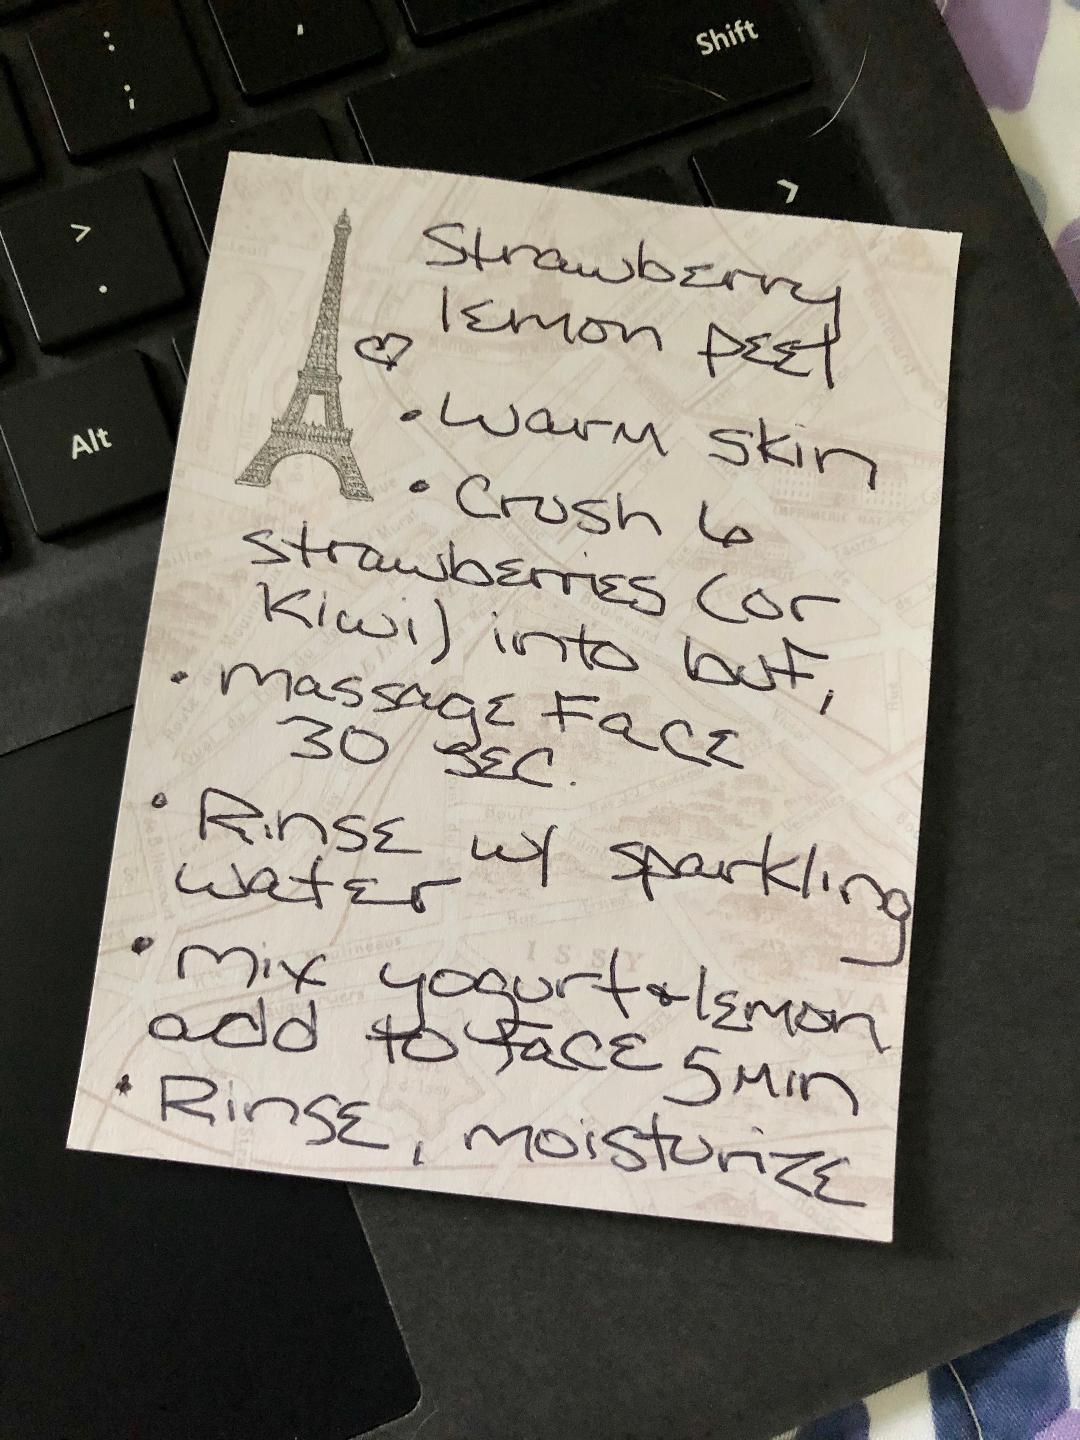 Shift
:
;
,
>
.
Alt
Strawberry
lemon peel
• Warm skin
• Crush 6
strawberries (or
Kiwi) into but,
• Massage Face
30 sec.
• Rinse w/ sparkling
water
• Mix yogurt & lemon
add to face 5 Min
• Rinse, moisturize
ISSY